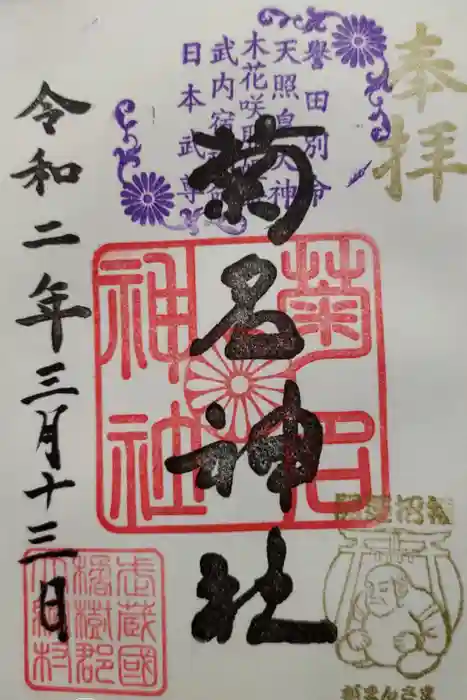 奉拝
誉田別命
天照皇大神
木花咲耶姫命
武内宿祢命
日本武尊
菊名神社
菊名神社
令和二年三月十三日
武蔵國
橘樹郡
大綱村